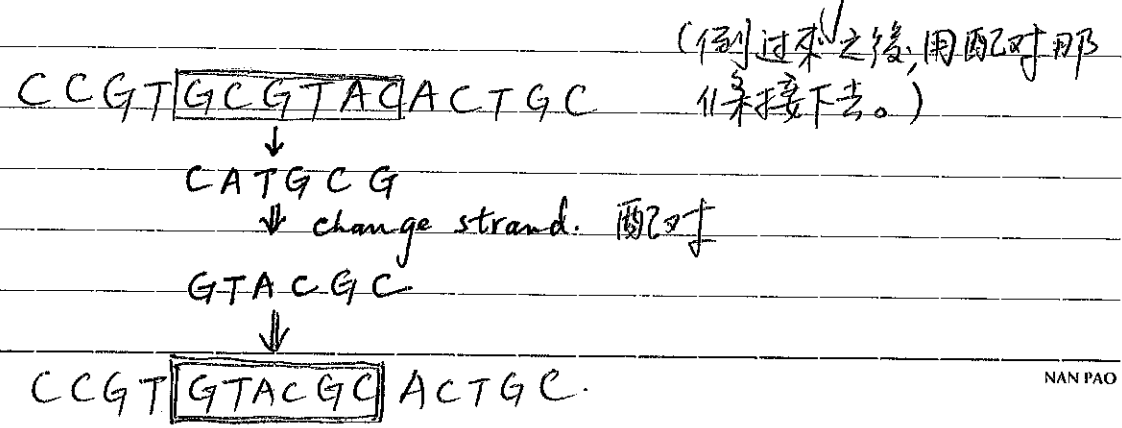 (倒过来之後,用配对那
CCGT GCGTAC ACTGC 條接下去。)
↓
CATGCG
⇓ change strand. 配对
GTACGC
⇓
CCGT GTACGC ACTGC.
NAN PAO